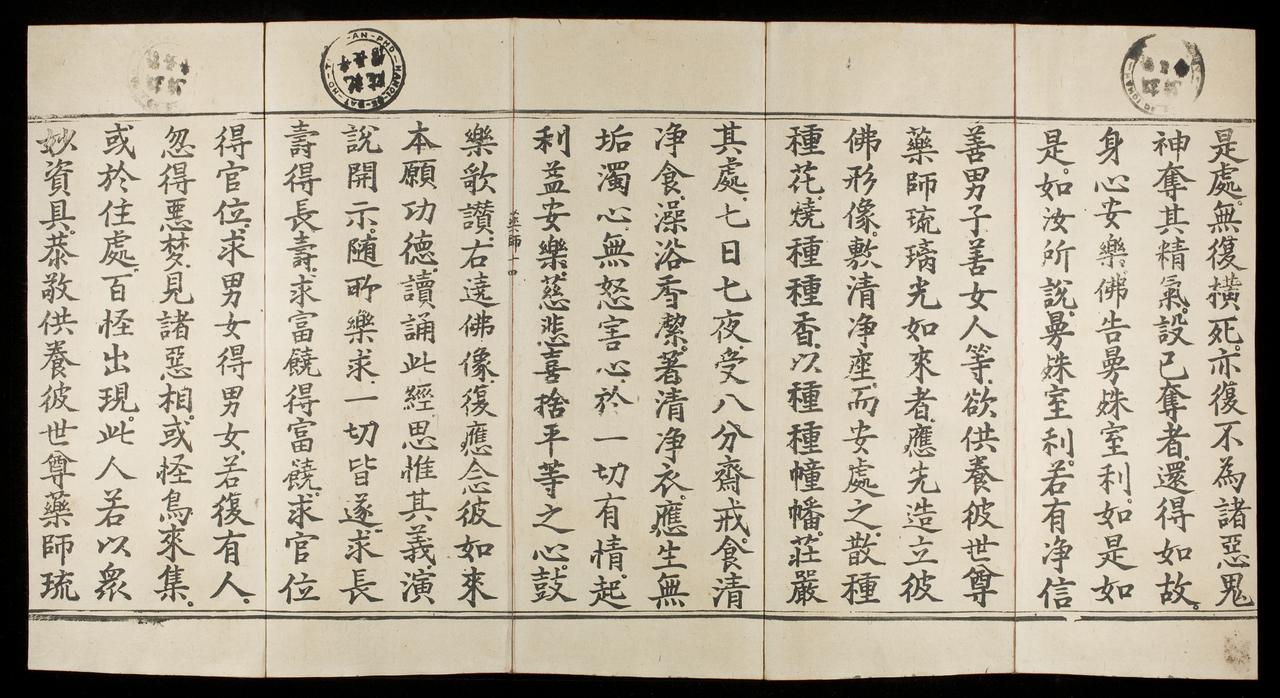 是處。無復橫死。亦復不為諸惡鬼
神奪其精氣。設已奪者。還得如故。
身心安樂。佛告曼殊室利。如是如
是。如汝所說。曼殊室利。若有净信
善男子善女人等。欲供養彼世尊
藥師琉璃光如來者。應先造立彼
佛形像。敷清净座。而安處之。散種
種花。燒種種香。以種種幢幡。莊嚴
其處。七日七夜。受八分齋戒。食清
净食。澡浴香潔。著清净衣。應生無
垢濁心。無怒害心。於一切有情。起
利益安樂。慈悲喜捨平等之心。鼓
藥師十四
樂歌讚。右遶佛像。復應念彼如來
本願功德。讀誦此經。思惟其義。演
說開示。随所樂求。一切皆遂。求長
壽得長壽。求富饒得富饒。求官位
得官位。求男女得男女。若復有人。
忽得悪夢。見諸惡相。或怪鳥來集。
或於住處。百怪出現。此人若以衆
妙資具。恭敬供養彼世尊藥師琉
AN-PHO-HANOI
BAT-HO